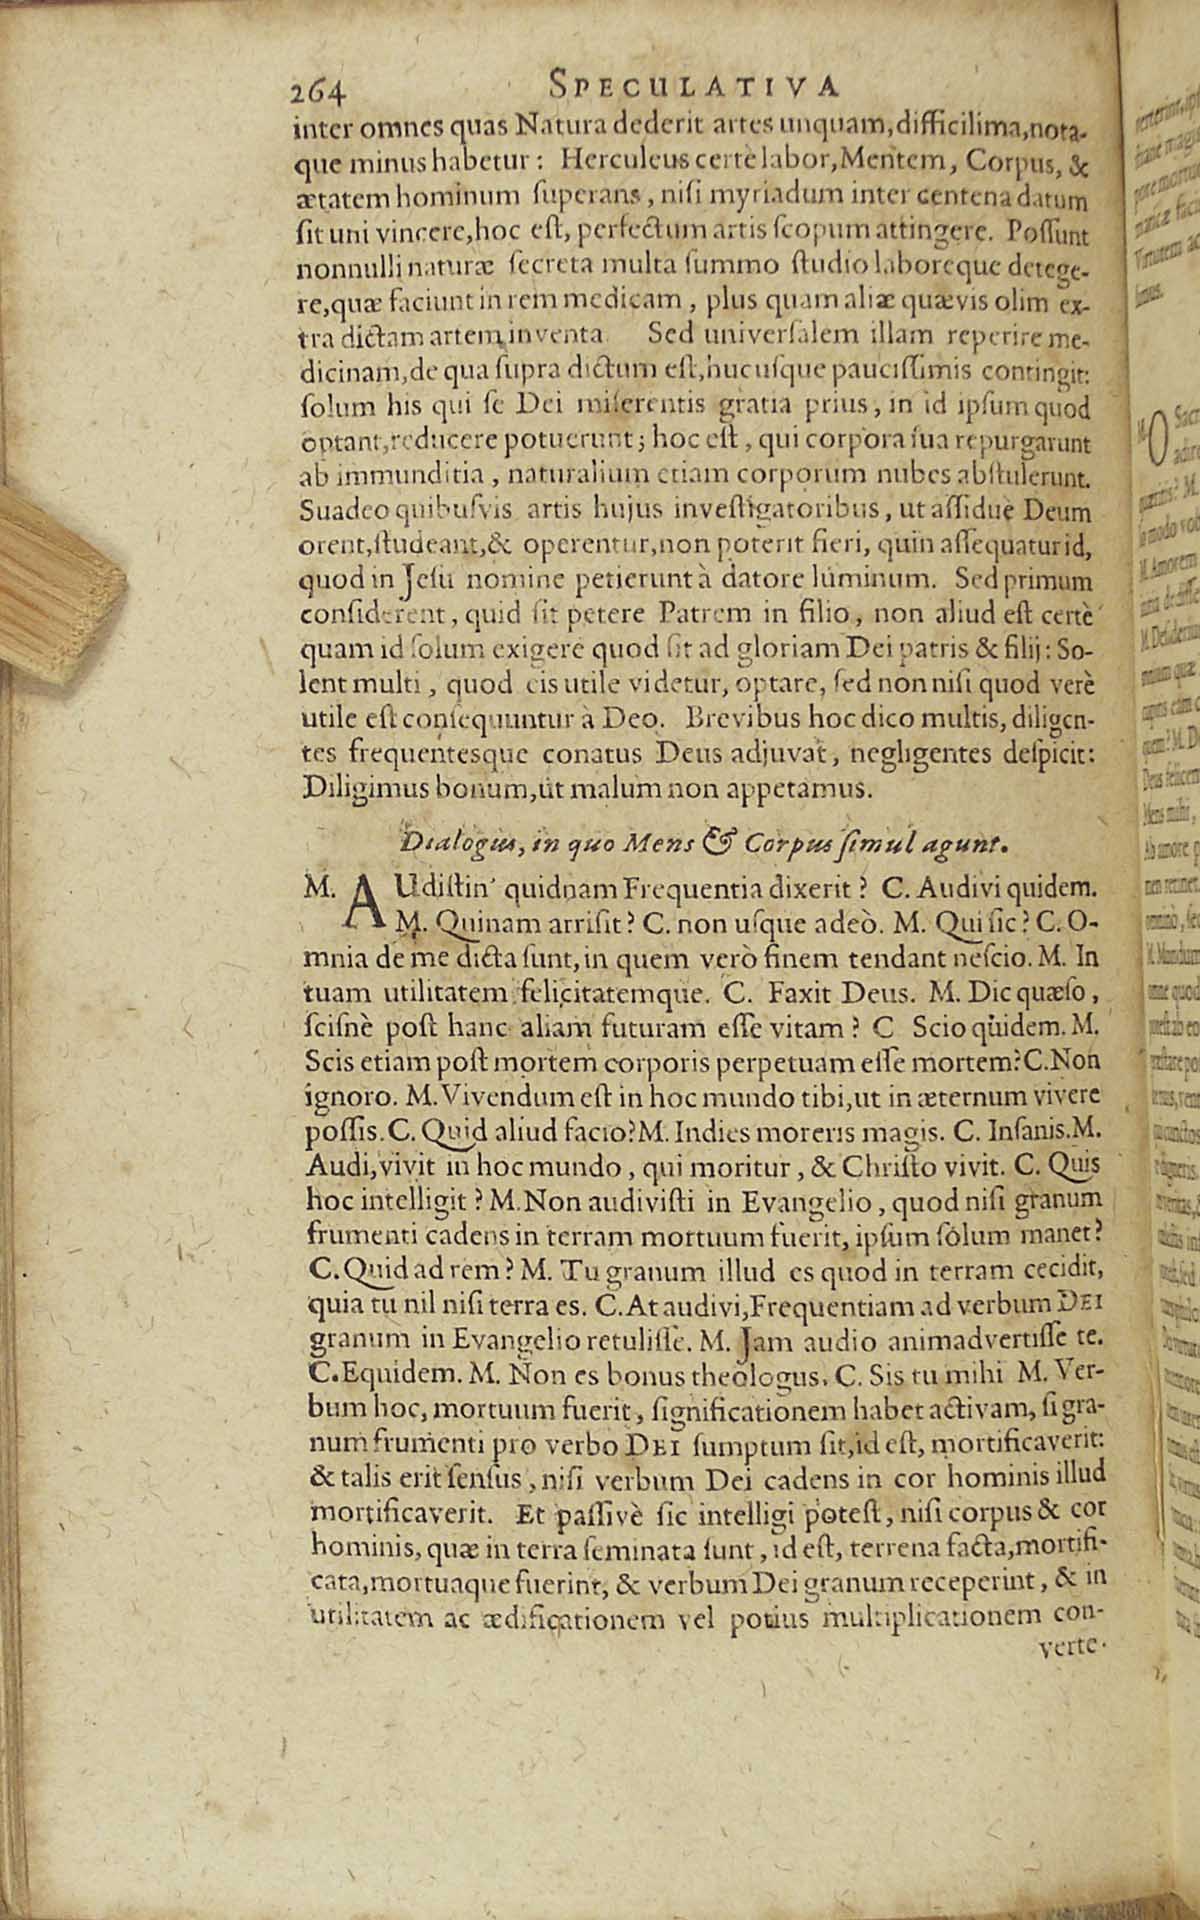 264 SPECULATIVA
inter omnes quas Natura dederit artes unquam, difficilima, nota-
que minus habetur: Herculeus certè labor, Mentem, Corpus, &
ætatem hominum ſuperans, niſi myriadum inter centena datum
ſit uni vincere, hoc eſt, perfectum artis ſcopum attingere. Poſſunt
nonnulli naturæ ſecreta multa ſummo ſtudio laboreque detege-
re, quæ faciunt in rem medicam, plus quam aliæ quævis olim ex-
tra dictam artem inventa. Sed univerſalem illam reperire me-
dicinam, de qua ſupra dictum eſt, hucuſque pauciſſimis contingit:
ſolum his qui ſe Dei miſerentis gratia prius, in id ipſum quod
optant, reducere potuerunt; hoc eſt, qui corpora ſua repurgarunt
ab immunditia, naturalium etiam corporum nubes abſtulerunt.
Suadeo quibuſvis artis hujus inveſtigatoribus, ut aſſiduè Deum
orent, ſtudeant, & operentur, non poterit fieri, quin aſſequatur id,
quod in Jeſu nomine petierunt à datore luminum. Sed primum
conſiderent, quid ſit petere Patrem in filio, non aliud eſt certè
quam id ſolum exigere quod ſit ad gloriam Dei patris & filij: So-
lent multi, quod eis utile videtur, optare, ſed non niſi quod verè
utile eſt conſequuntur à Deo. Brevibus hoc dico multis, diligen-
tes frequentesque conatus Deus adjuvat, negligentes deſpicit:
Diligimus bonum, ut malum non appetamus.
Dialogus, in quo Mens & Corpus ſimul agunt.
M. AUdiſtin' quidnam Frequentia dixerit? C. Audivi quidem.
M. Quinam arriſit? C. non uſque adeò. M. Qui ſic? C. O-
mnia de me dicta ſunt, in quem verò finem tendant neſcio. M. In
tuam utilitatem felicitatemque. C. Faxit Deus. M. Dic quæſo,
ſciſnè poſt hanc aliam futuram eſſe vitam? C Scio quidem. M.
Scis etiam poſt mortem corporis perpetuam eſſe mortem? C. Non
ignoro. M. Vivendum eſt in hoc mundo tibi, ut in æternum vivere
poſſis. C. Quid aliud facio? M. Indies moreris magis. C. Inſanis. M.
Audi, vivit in hoc mundo, qui moritur, & Chriſto vivit. C. Quis
hoc intelligit? M. Non audiviſti in Evangelio, quod niſi granum
frumenti cadens in terram mortuum fuerit, ipſum ſolum manet?
C. Quid ad rem? M. Tu granum illud es quod in terram cecidit,
quia tu nil niſi terra es. C. At audivi, Frequentiam ad verbum DEI
granum in Evangelio retuliſſe. M. Jam audio animadvertiſſe te.
C. Equidem. M. Non es bonus theologus. C. Sis tu mihi M. Ver-
bum hoc, mortuum fuerit, ſignificationem habet activam, ſi gra-
num frumenti pro verbo DEI ſumptum ſit, id eſt, mortificaverit:
& talis erit ſenſus, niſi verbum Dei cadens in cor hominis illud
mortificaverit. Et paſſivè ſic intelligi poteſt, niſi corpus & cor
hominis, quæ in terra ſeminata ſunt, id eſt, terrena facta, mortifi-
cata, mortuaque fuerint, & verbum Dei granum receperint, & in
utilitatem ac ædificationem vel potius multiplicationem con-
verte-